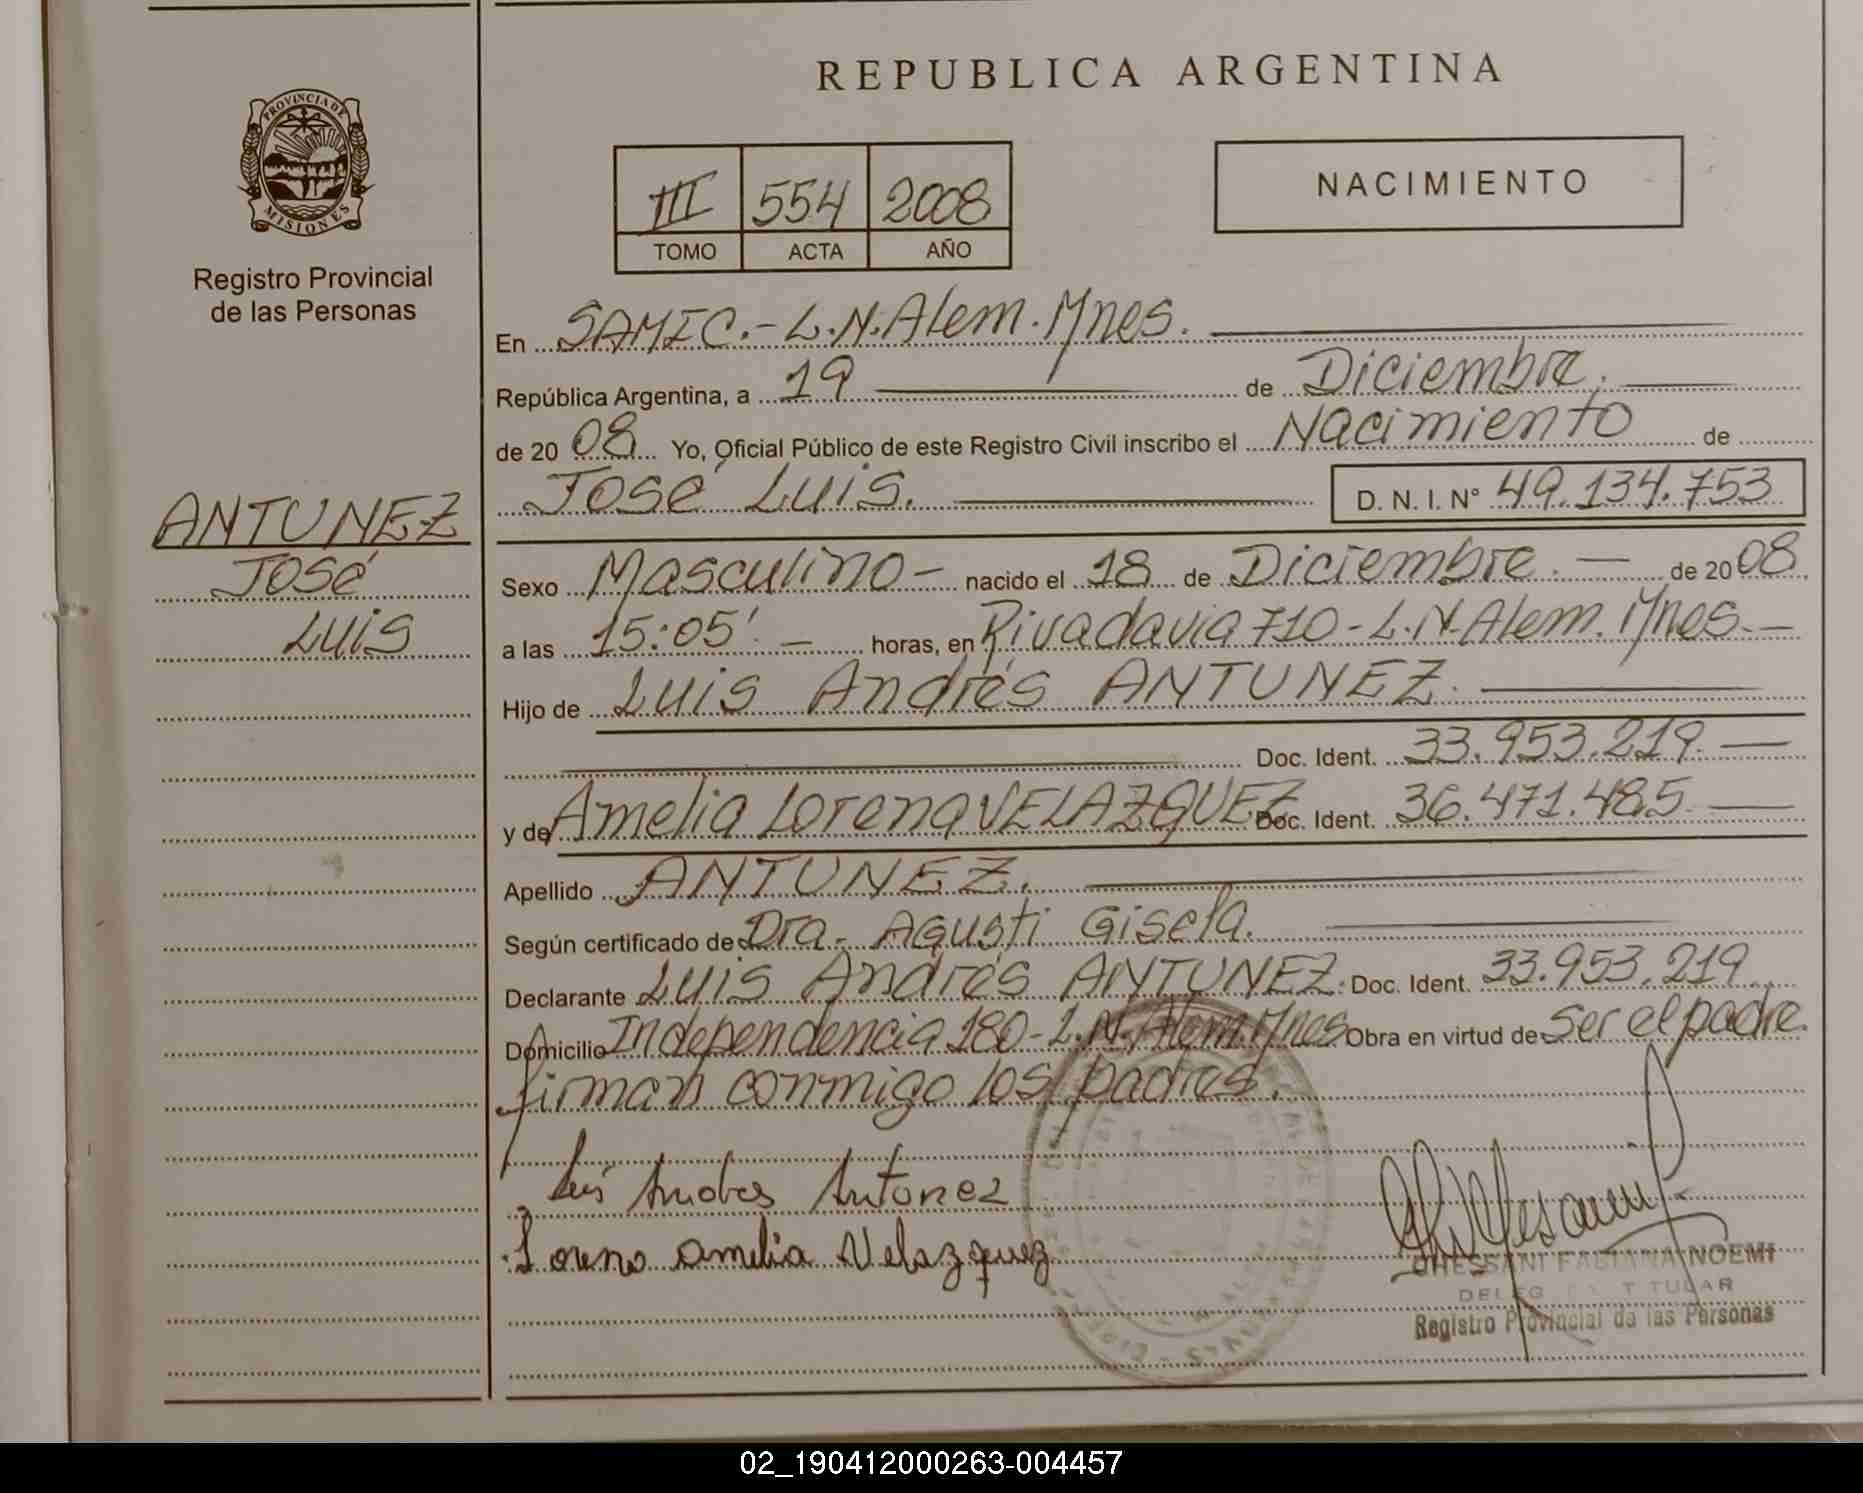 REPUBLICA ARGENTINA
PROVINCIA DE
MISIONES
Registro Provincial
de las Personas
III 554 2008
TOMO ACTA AÑO
NACIMIENTO
En SAMIC.- L.N. Alem. Mnes.
República Argentina, a 19 de Diciembre.
de 20 08 Yo, Oficial Público de este Registro Civil inscribo el Nacimiento de
José Luis. D. N. I. N° 49.134.753
ANTUNEZ
José
Luis
Sexo Masculino - nacido el 18 de Diciembre. - de 20 08
a las 15:05'. - horas, en Rivadavia 710 - L.N. Alem. Mnes. -
Hijo de Luis Andrés ANTUNEZ.
Doc. Ident. 33.953.219. -
y de Amelia Lorena VELAZQUEZ Doc. Ident. 36.471.485. -
Apellido ANTUNEZ.
Según certificado de Dra. Agusti Gisela.
Declarante Luis Andrés ANTUNEZ. Doc. Ident. 33.953.219
Domicilio Independencia 180 - L.N. Alem. Mnes Obra en virtud de ser el padre.
firman conmigo los padres.
Luis Andres Antonez
Lorena amelia Velazquez
FABIANA NOEMI
TITULAR
Registro Provincial de las Personas
02_190412000263-004457